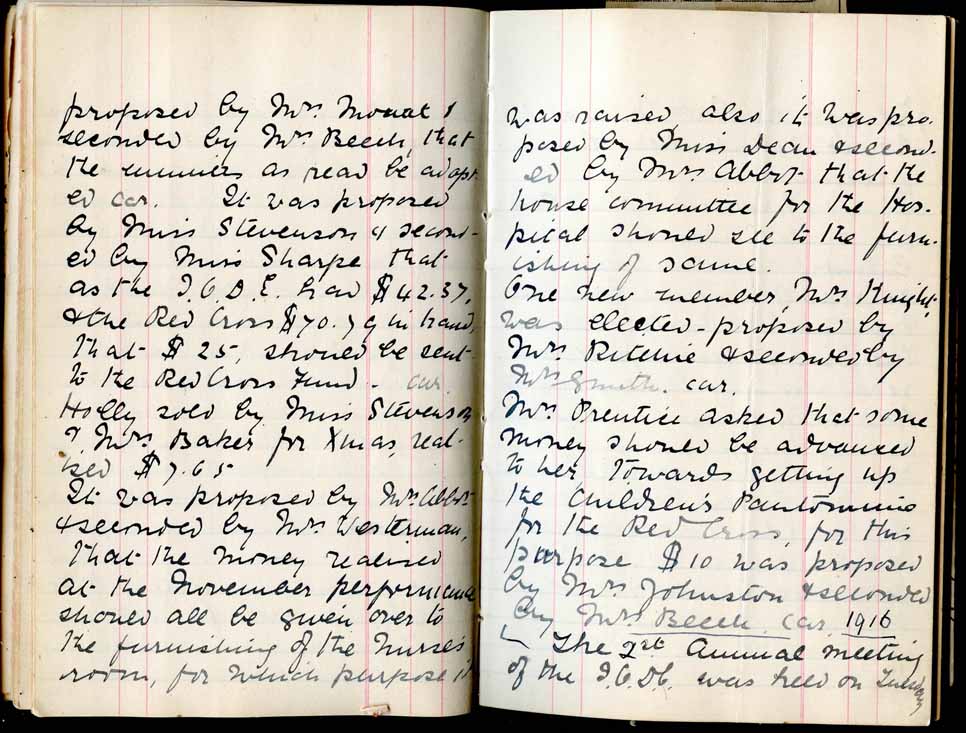 proposed by Mrs Mouat &
seconded by Mrs Beech, that
the minutes as read be adopt-
ed car. It was proposed
by Miss Stevenson & second-
ed by Miss Sharpe that
as the I.O.D.E. had $42.37,
& the Red Cross $70.79 in hand,
that $25, should be sent
to the Red Cross Fund - car
Holly sold by Miss Stevenson
& Mrs Baker for Xmas, real-
ised $7.65
It was proposed by Mrs Abbot
& seconded by Mrs Westerman,
that the money realised
at the November performance
should all be given over to
the furnishing of the Nurse's
room, for which purpose it
was raised, also it was pro-
posed by Miss Dean & second-
ed by Mrs Abbot that the
house committee for the Hos-
pital should see to the furn-
ishing of same.
One new member, Mrs Knight,
was elected - proposed by
Mrs Ritchie & seconded by
Mrs Smith. car.
Mrs Prentice asked that some
money should be advanced
to her, towards getting up
the Children's Pantomime
for the Red Cross, for this
purpose $10 was proposed
by Mrs Johnston & seconded
by Mrs Beech. car. 1916
The Annual meeting
of the was held on Tuesday